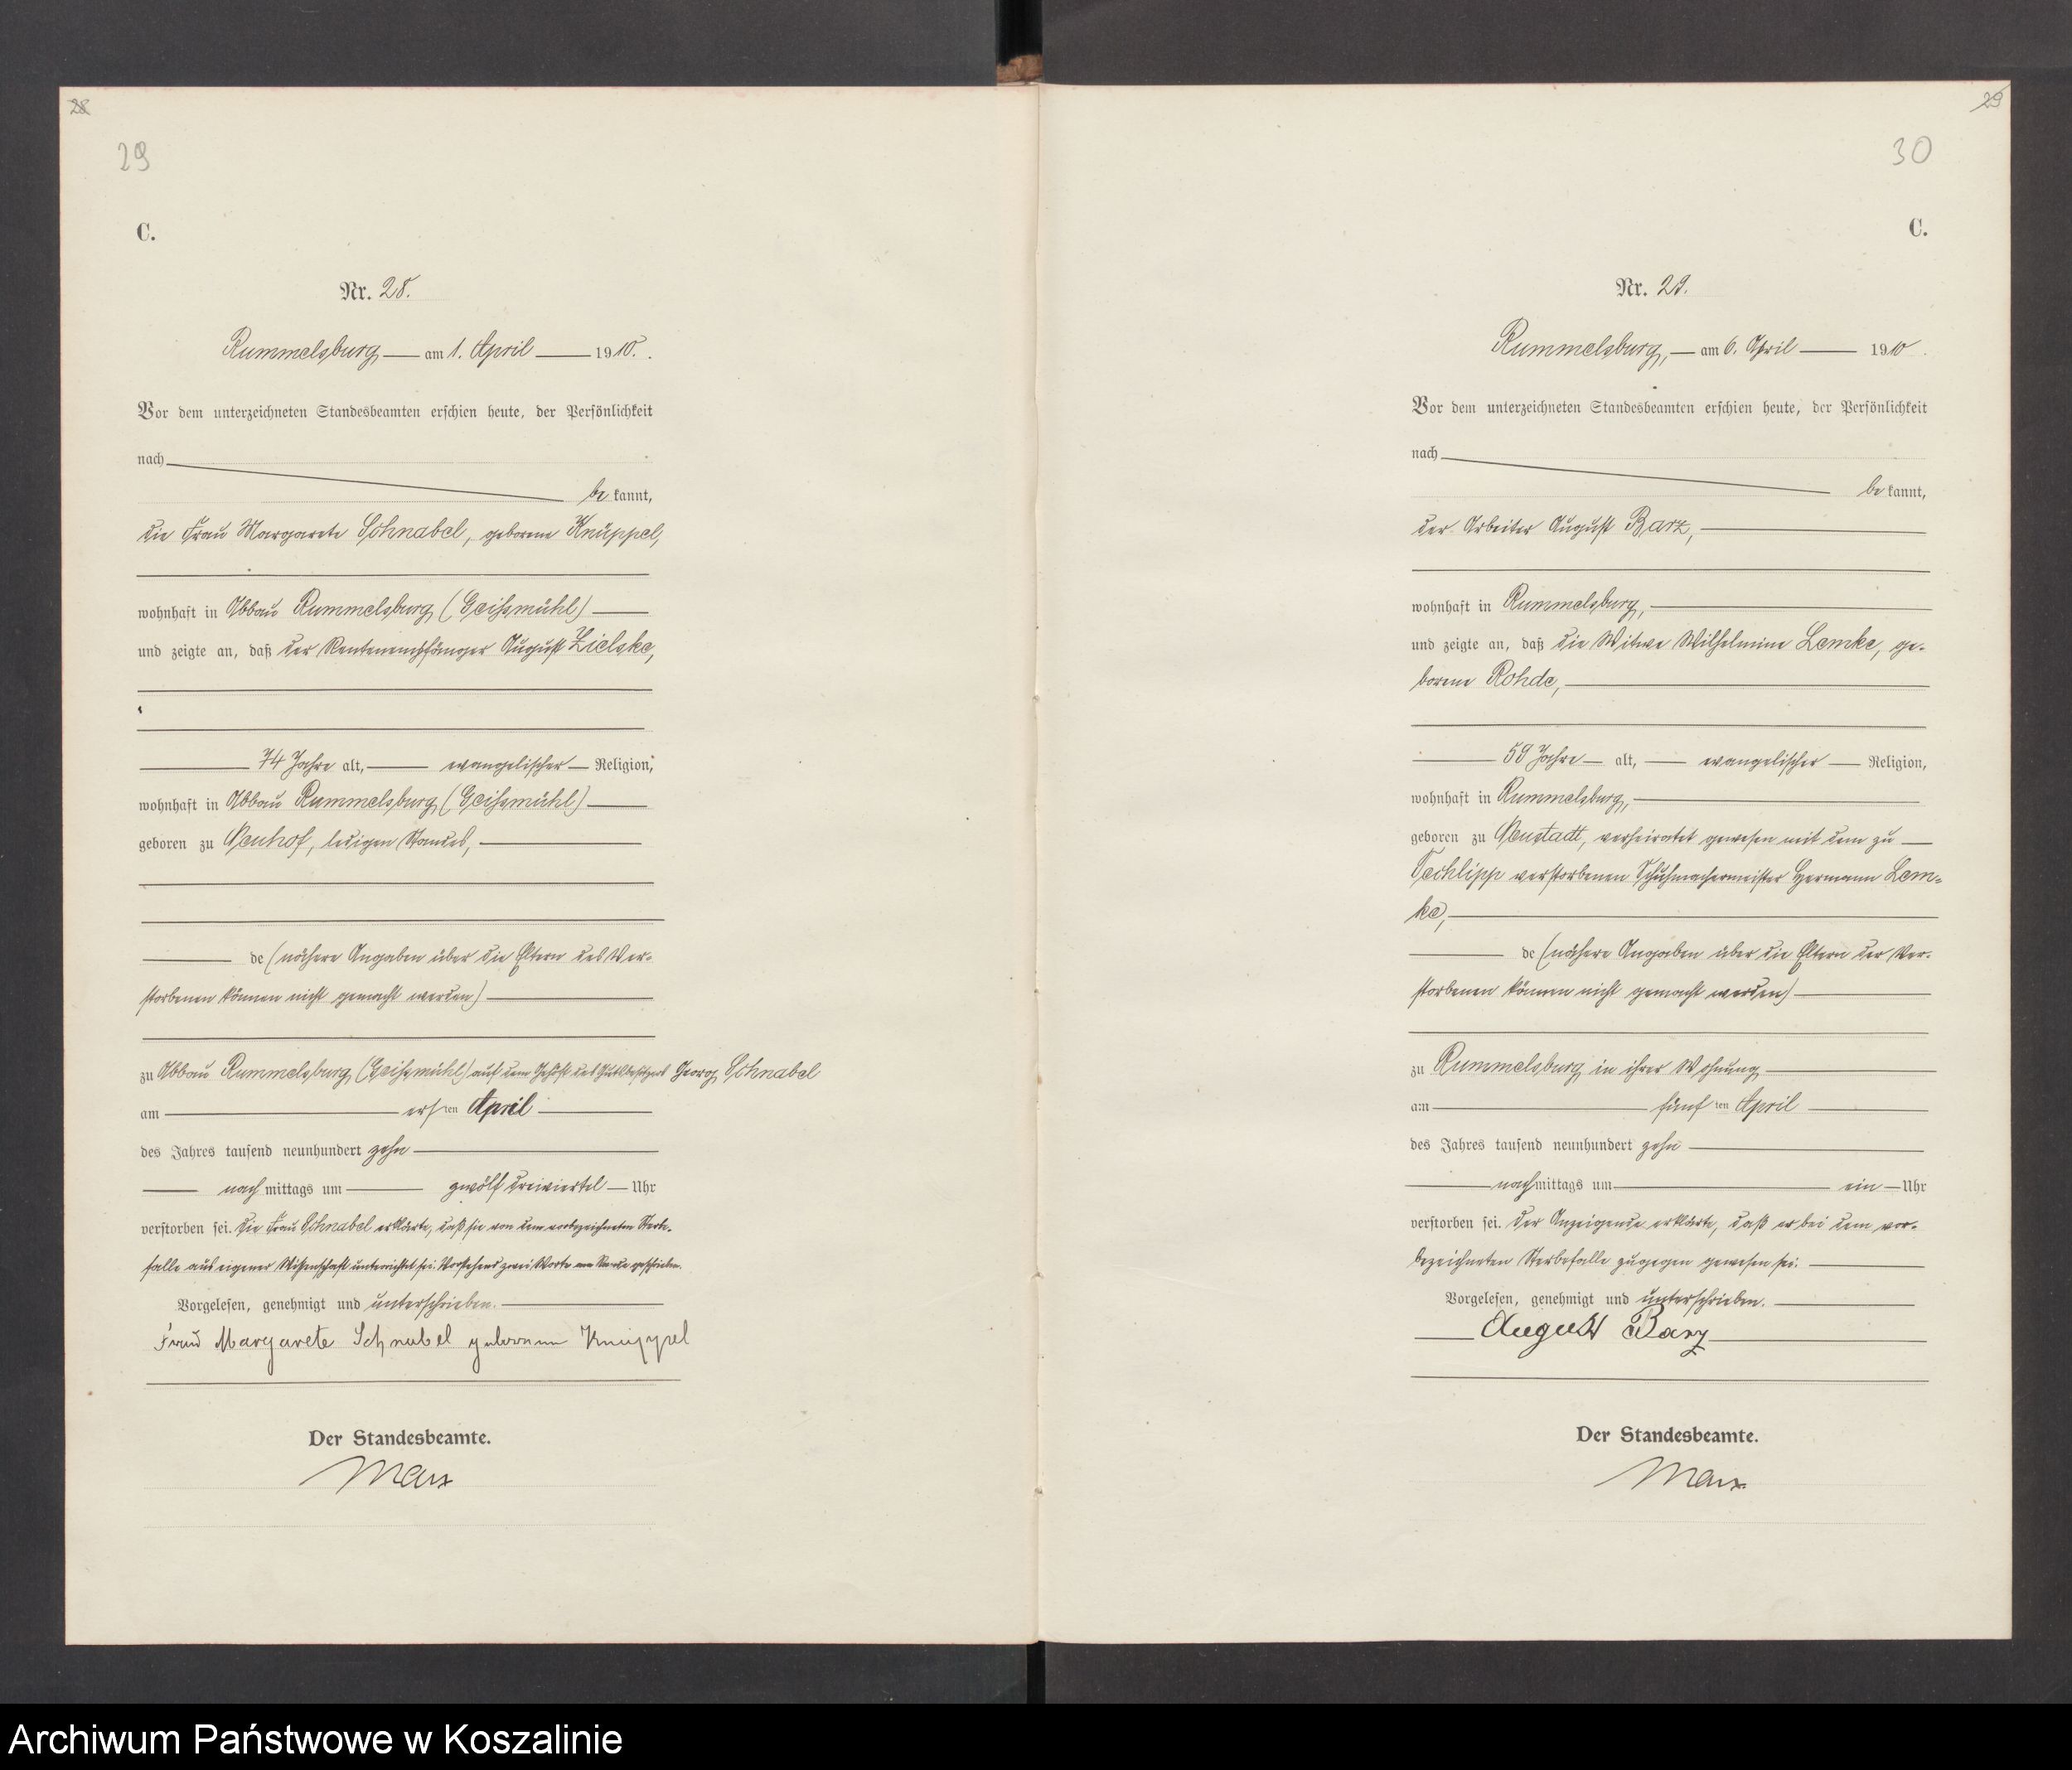 28
29
C.
Nr. 28.
Rummelsburg am 1. April 1910.
Vor dem unterzeichneten Standesbeamten erschien heute, der Persönlichkeit
nach
be kannt,
die Frau Margarete Schnabel, geborene Knüppel,
wohnhaft in Abbau Rummelsburg (Geißmühl)
und zeigte an, daß der Rentenempfänger August Zielske,
74 Jahre alt, evangelischer Religion,
wohnhaft in Abbau Rummelsburg (Geißmühl)
geboren zu Neuhof, ledigen Standes,
de (nähere Angaben über die Eltern des Ver-
storbenen können nicht gemacht werden)
zu Abbau Rummelsburg (Geißmühl) auf dem Gehöft des Gutsbesitzers Georg Schnabel
am ersten April
des Jahres tausend neunhundert zehn
nach mittags um zwölf dreiviertel Uhr
verstorben sei. Die Frau Schnabel erklärte, daß sie von dem vorbezeichneten Sterbe-
falle aus eigener Wissenschaft unterrichtet sei. Vorstehend zwei Worte am Rande geschrieben.
Vorgelesen, genehmigt und unterschrieben.
Frau Margarete Schnabel geborene Knüppel
Der Standesbeamte.
Marx
29
30
C.
Nr. 29.
Rummelsburg, am 6. April 1910
Vor dem unterzeichneten Standesbeamten erschien heute, der Persönlichkeit
nach
be kannt,
der Arbeiter August Barz,
wohnhaft in Rummelsburg,
und zeigte an, daß die Witwe Wilhelmine Lemke, ge-
borene Rohde,
59 Jahre alt, evangelischer Religion,
wohnhaft in Rummelsburg,
geboren zu Neustadt, verheiratet gewesen mit dem zu
Techlipp verstorbenen Schuhmachermeister Hermann Lem-
ke,
de (nähere Angaben über die Eltern der Ver-
storbenen können nicht gemacht werden)
zu Rummelsburg in ihrer Wohnung
am fünf ten April
des Jahres tausend neunhundert zehn
nachmittags um ein Uhr
verstorben sei. Der Anzeigende erklärte, daß er bei dem vor-
bezeichneten Sterbefalle zugegen gewesen sei.
Vorgelesen, genehmigt und unterschrieben.
August Barz
Der Standesbeamte.
Marx
Archiwum Państwowe w Koszalinie